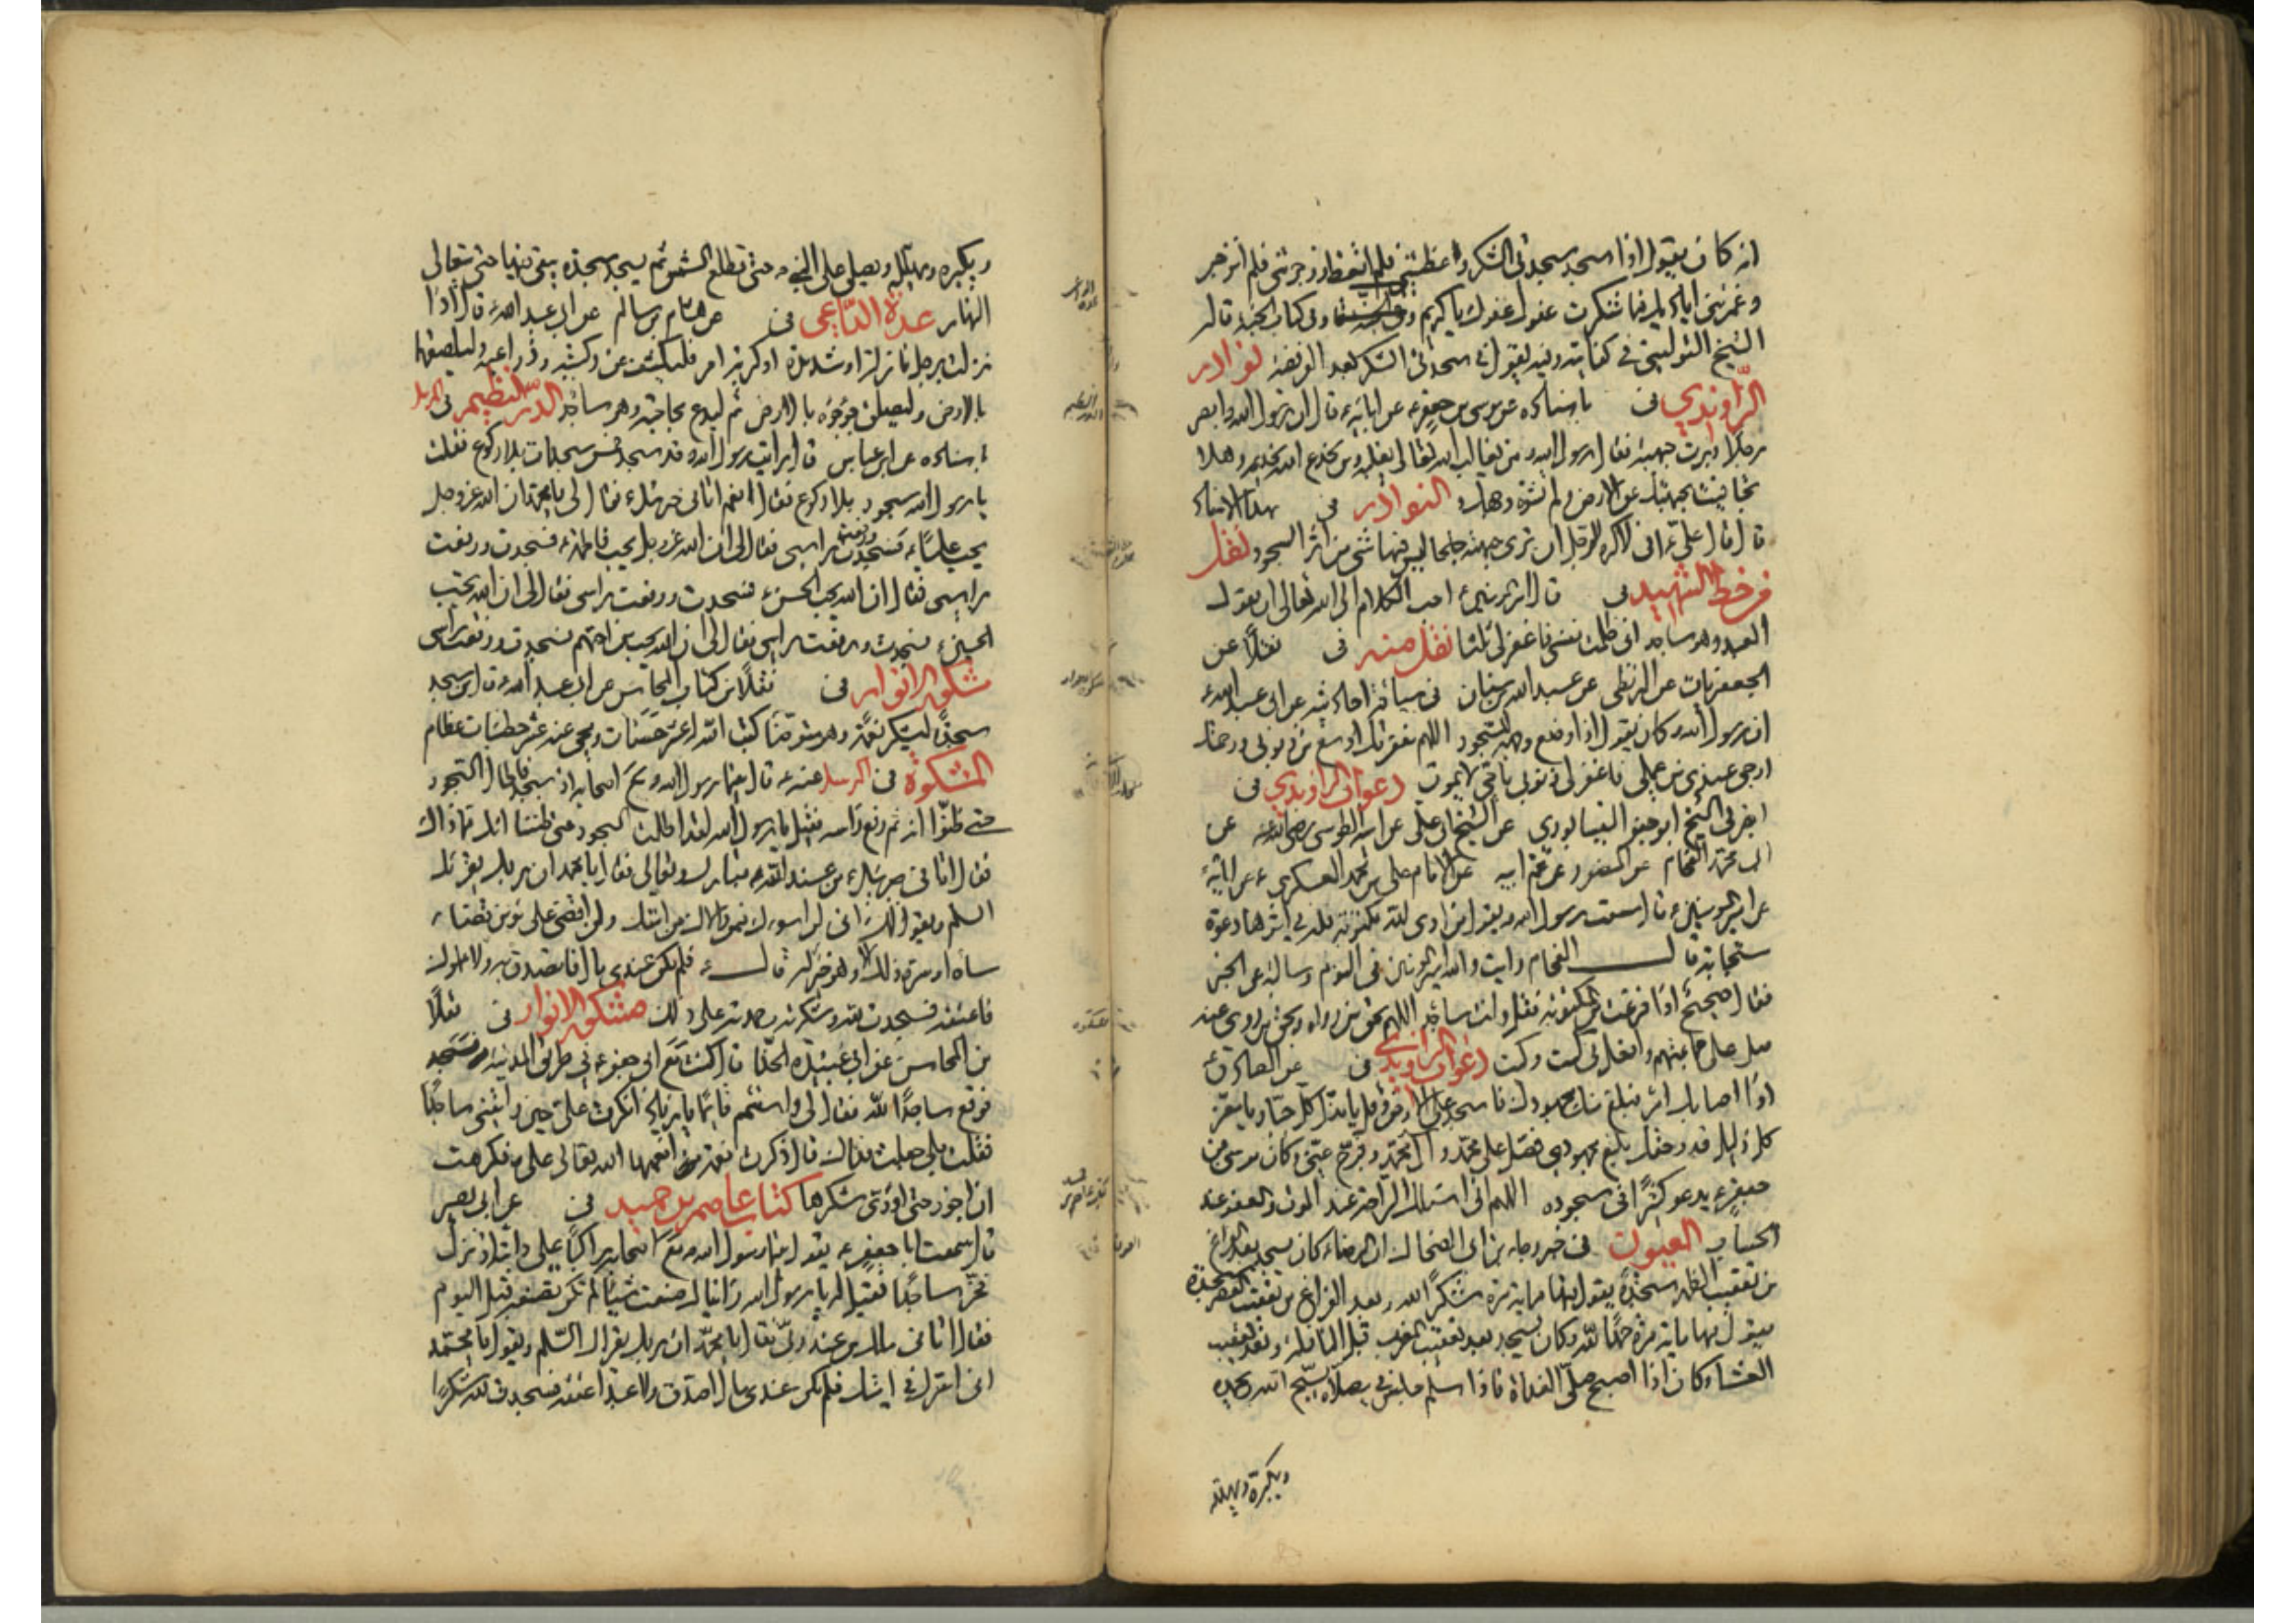 انه كان يقول اذا سجد سجدتى الشكر وعظتنى فلم اتعظ وزجرتنى فلم انزجر
وغمرتنى اياديك فما شكرت عفوك عفوك يا كريم وفى كتاب الجنة قال
الشيخ في كتابه وفيه يقول في سجدتى الشكر بعد الفريضة نوادر
الراوندي فى باسناده عن موسى بن جعفر ع عن ابائه ع قال ان رسول الله ص ابصر
رجلا دبرت جبهته فقال رسول الله ص من يغالب الله تعالى يغلبه ومن يخدع الله يخدعه وهلا
تجافيت بجبهتك عن الارض ولم تشوه وجهك النوادر فى بهذا الاسناد
قال قال على ع انى لاكره للرجل ان ترى جبهته جلحا ليس فيها شى من اثر السجود نقل
من خط الشهيد فى قال احب الكلام الى الله تعالى ان يقول
العبد وهو ساجد انى ظلمت نفسى فاغفر لى ثلثا نقل منه فى نقلا عن
الجعفريات عن البزنطى عن عبد الله بن سنان عن ابى عبد الله ع
ان رسول الله ص كان يقول اذا وضع وجهه للسجود اللهم مغفرتك اوسع من ذنوبى ورحمتك
ارجى عندى من عملى فاغفر لى ذنوبى يا حى لا يموت دعوات الراوندي فى
اخبرنى الشيخ ابو جعفر النيسابوري عن الشيخ ابى على عن ابيه الطوسى رضى الله عنه عن
ابى محمد الفحام عن المنصورى عن عم ابيه عن الامام على بن محمد العسكري ع عن ابائه ع
عن امير المومنين ع قال سمعت رسول الله ص يقول من ادى لله مكتوبة فله في اثرها دعوة
مستجابة قال الفحام رايت والله امير المومنين فى النوم وسالته عن الخبر
فقال صحيح اذا فرغت من المكتوبة فقل وانت ساجد اللهم بحق من رواه وبحق من روى عنه
صل على جماعتهم وافعل بى كيت وكيت دعوات الراوندي فى عن الصادق ع
اذا اصابك امر فبلغ منك مجهودك فاسجد على الارض وقل يا مذل كل جبار يا معز
كل ذليل قد وحقك بلغ مجهودى فصل على محمد وال محمد وفرج عنى وكان موسى بن
جعفر ع يدعو كثيرا فى سجوده اللهم انى اسئلك الراحة عند الموت والعفو عند
الحساب العيون فى خبر رجا بن ابى الضحاك ان الرضا ع كان يسجد بعد الفراغ
من تعقيب الظهر سجدة يقول فيها مائة مرة شكرا لله وبعد الفراغ من تعقيب العصر سجدة
يقول فيها مائة مرة حمدا لله وكان يسجد بعد تعقيب المغرب قبل النافلة وبعد تعقيب
العشاء وكان اذا اصبح صلى الغداة فاذا سلم جلس في مصلاه يسبح الله ويحمده
ويكبره ويهلله
ويكبره ويهلله ويصلى على النبى ص حتى تطلع الشمس ثم يسجد سجدة يبقى فيها حتى يتعالى
النهار عدة الداعى فى عن هشام بن سالم عن ابى عبد الله ع قال اذا
نزلت برجل نازلة او شديدة او كربه امر فليكشف عن ركبتيه وذراعيه وليلصقها
بالارض وليلصق جؤجؤه بالارض ثم ليدع بحاجته وهو ساجد الدر النظيم فى
باسناده عن ابن عباس قال رايت رسول الله ص قد سجد خمس سجدات بلا ركوع فقلت
يا رسول الله سجود بلا ركوع فقال نعم اتانى جبرئيل ع فقال لى يا محمد ان الله عز وجل
يحب عليا ع فسجدت ورفعت راسى فقال لى ان الله عز وجل يحب فاطمة ع فسجدت ورفعت
راسى فقال ان الله يحب الحسن ع فسجدت ورفعت راسى فقال لى ان الله يحب
الحسين ع فسجدت ورفعت راسى فقال لى ان الله يحب من احبهم فسجدت ورفعت راسى
مشكوة الانوار فى نقلا من كتاب المحاسن عن ابى عبد الله ع قال من سجد
سجدة ليشكر نعمة وهو متوضا كتب الله له عشر حسنات ومحى عنه عشر خطيئات عظام
المشكوة فى عنه ع قال بينما رسول الله ص مع اصحابه اذ سجد فاطال السجود
حتى ظنوا انه ثم رفع راسه فقيل يا رسول الله لقد اطلت السجود حتى ظننا انك فقال ذاك
فقال اتانى جبرئيل من عند الله تبارك وتعالى فقال يا محمد ان ربك يقرئك
السلم ويقول لك انى لن اسوءك فيمن والاك من امتك ولن اقضى على مومن قضاء
ساءه او سره ذلك الا وهو خير له قال ع فلم يكن عندى مال فاتصدق به ولا مملوك
فاعتقه فسجدت لله وشكرته وحمدته على ذلك مشكوة الانوار فى نقلا
من المحاسن عن ابى عبيدة الحذا قال كنت مع ابى جعفر ع في طريق المدينة
فوقع ساجدا لله فقال لى واستتم قائما يا زياد انكرت على حين رايتنى ساجدا
فقلت بلى جعلت فداك قال ذكرت نعمة انعمها الله تعالى على فكرهت
ان اجوز حتى اؤدى شكرها كتاب عاصم بن حميد فى عن ابى بصير
قال سمعت ابا جعفر ع يقول بينا رسول الله ص مع اصحابه راكبا على دابته اذ نزل
فخر ساجدا فقيل له يا رسول الله راينا لك صنعت شيئا لم تكن تصنعه قبل اليوم
فقال اتانى ملك من عند ربى فقال يا محمد ان ربك يقرئك السلم ويقول يا محمد
انى اسرك في امتك فلم يكن عندى مال اصدق ولا عبد اعتقه فسجدت لله شكرا